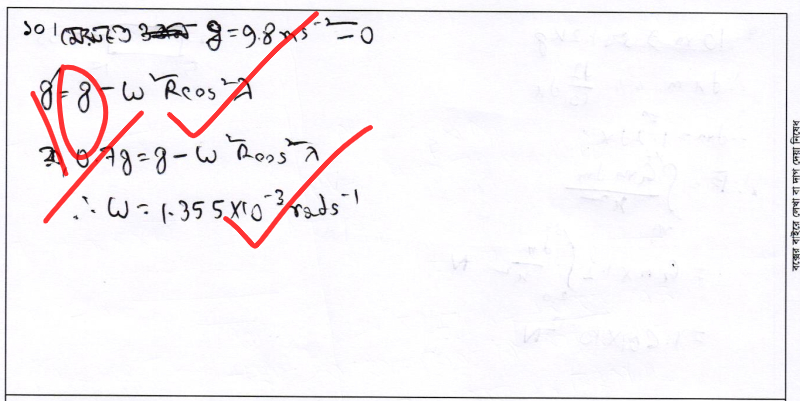 ১০। মেরুতে g = 9.8 ms⁻² — 0
g' = g - ω²Rcos²λ
0.7g = g - ω²Rcos²λ
∴ ω = 1.355×10⁻³ rads⁻¹
বক্সের বাইরে লেখা বা দাগ দেয়া নিষেধ